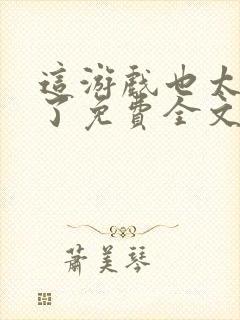 這游戲也太
了免費全文
蕭美琴